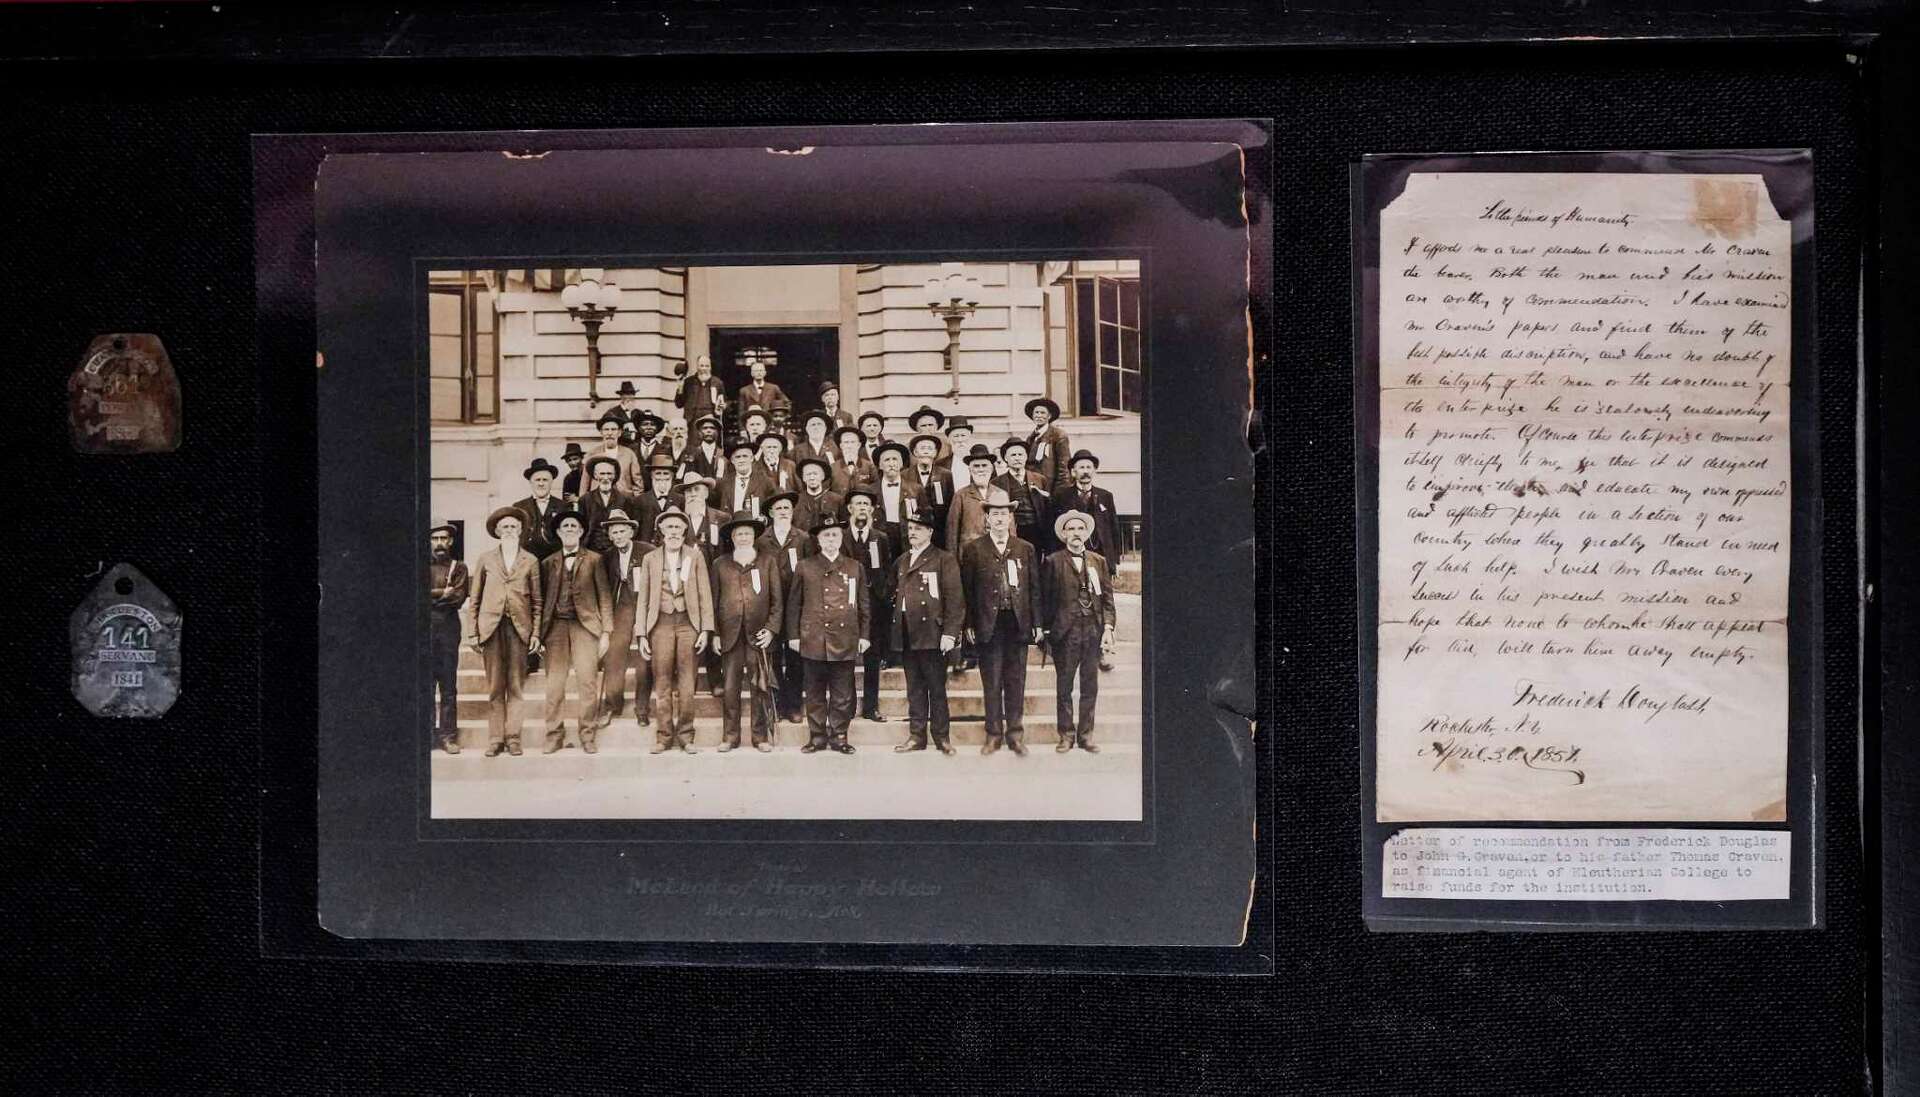 361
CHARLESTON
141
SERVANT
1841
McLeod of Happy Hollow
Hot Springs, Ark.
To the friends of Humanity.
It affords me a real pleasure to commend Mr Craven
the bearer. Both the man and his mission
are worthy of commendation. I have examined
Mr Craven's papers and find them of the
best possible discription, and have no doubt of
the integrity of the man or the excellence of
the enterprize he is zealously endeavoring
to promote. Of course this enterprize commends
itself chiefly to me, in that it is designed
to improve and educate my own oppressed
and afflicted people in a section of our
Country where they greatly stand in need
of such help. I wish Mr Craven every
success in his present mission and
hope that none to whom he shall appeal
for aid, will turn him away empty.
Frederick Douglass,
Rochester, N.Y.
April 30. 1851.
Letter of recommendation from Frederick Douglas
to John G. Craven, or to his father Thomas Craven,
as financial agent of Eleutherian College to
raise funds for the institution.